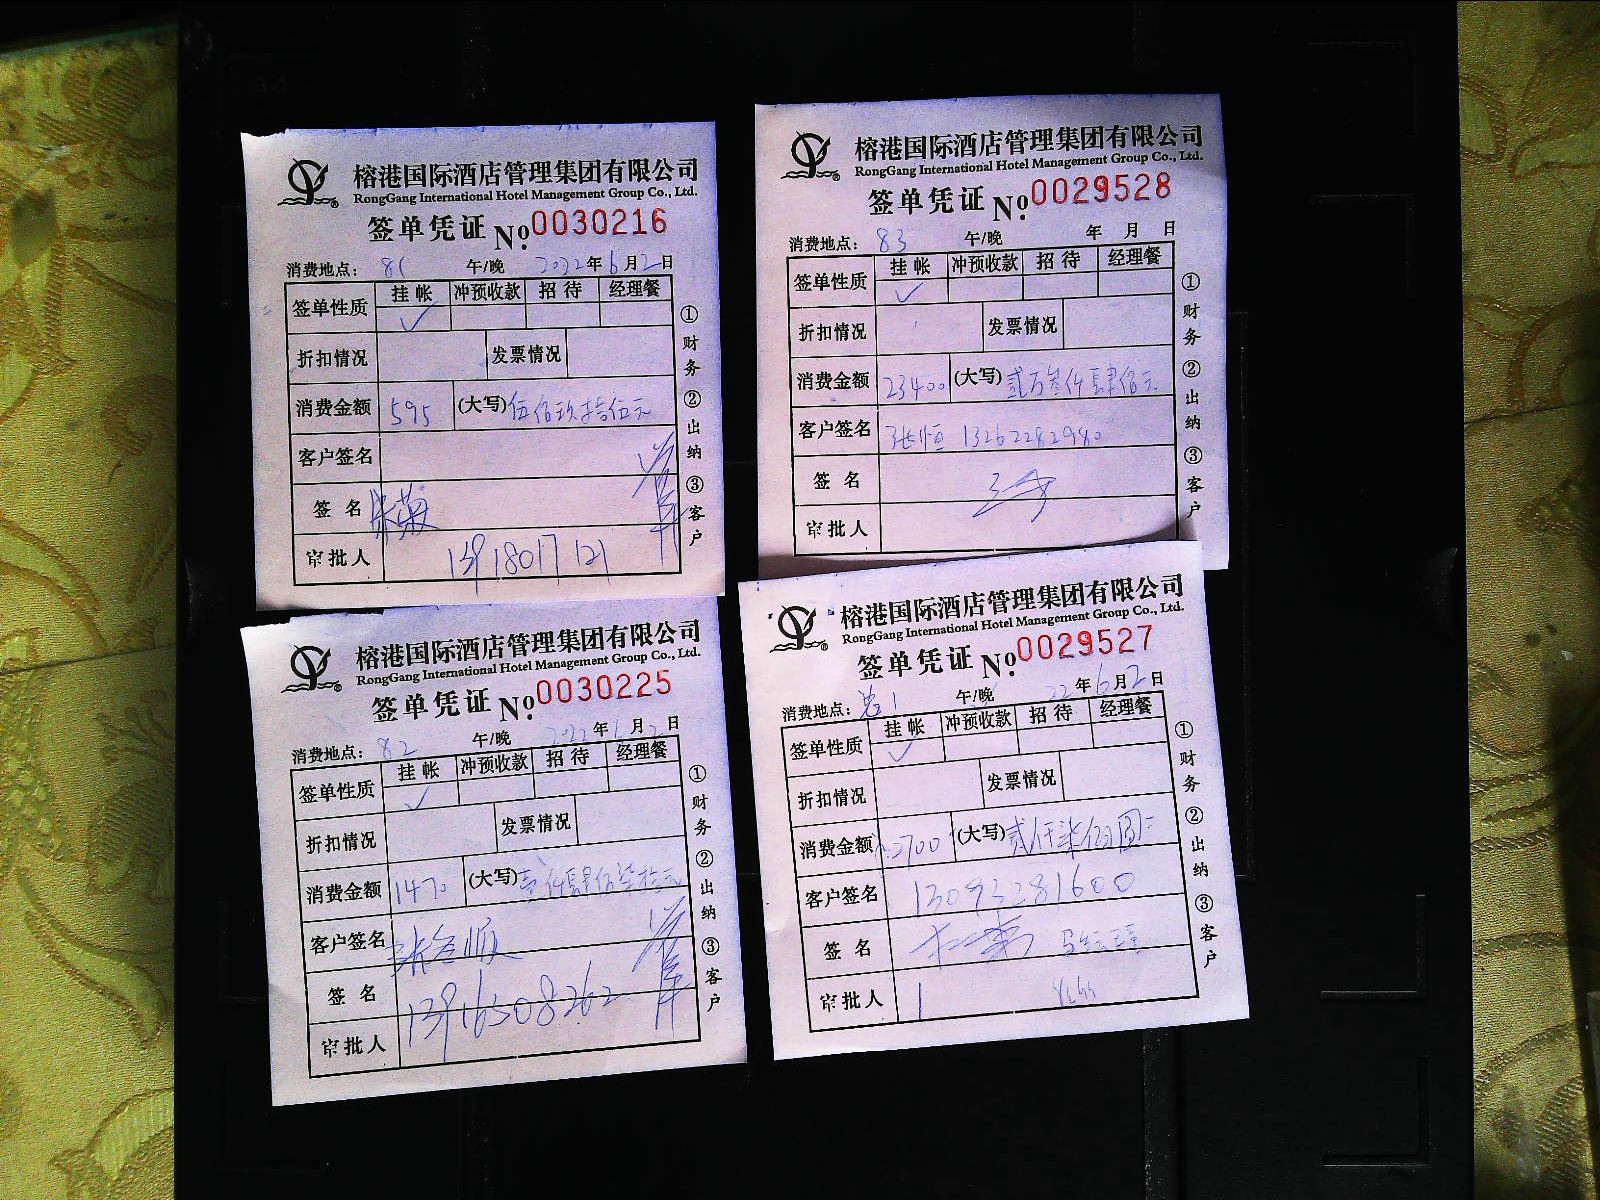 榕港国际酒店管理集团有限公司
RongGang International Hotel Management Group Co., Ltd.
签单凭证 No. 0030216
消费地点： 午/晚 年6月2日
签单性质 挂帐 冲预收款 招待 经理餐
✓
折扣情况 发票情况
消费金额 595 (大写) 伍佰玖拾伍元
客户签名
签名
审批人
①财务 ②出纳 ③客户
榕港国际酒店管理集团有限公司
RongGang International Hotel Management Group Co., Ltd.
签单凭证 No. 0029528
消费地点： 83 午/晚 年 月 日
签单性质 挂帐 冲预收款 招待 经理餐
✓
折扣情况 发票情况
消费金额 23400 (大写) 贰万叁仟肆佰元
客户签名 张恒 13262282980
签名
审批人
①财务 ②出纳 ③客户
榕港国际酒店管理集团有限公司
RongGang International Hotel Management Group Co., Ltd.
签单凭证 No. 0030225
消费地点： 82 午/晚 2022年6月2日
签单性质 挂帐 冲预收款 招待 经理餐
✓
折扣情况 发票情况
消费金额 1470 (大写) 壹仟肆佰柒拾元
客户签名
签名 13916508262
审批人
①财务 ②出纳 ③客户
榕港国际酒店管理集团有限公司
RongGang International Hotel Management Group Co., Ltd.
签单凭证 No. 0029527
消费地点： 午/晚 22年6月2日
签单性质 挂帐 冲预收款 招待 经理餐
✓
折扣情况 发票情况
消费金额 2700 (大写) 贰仟柒佰圆
客户签名 13093281600
签名
审批人
①财务 ②出纳 ③客户